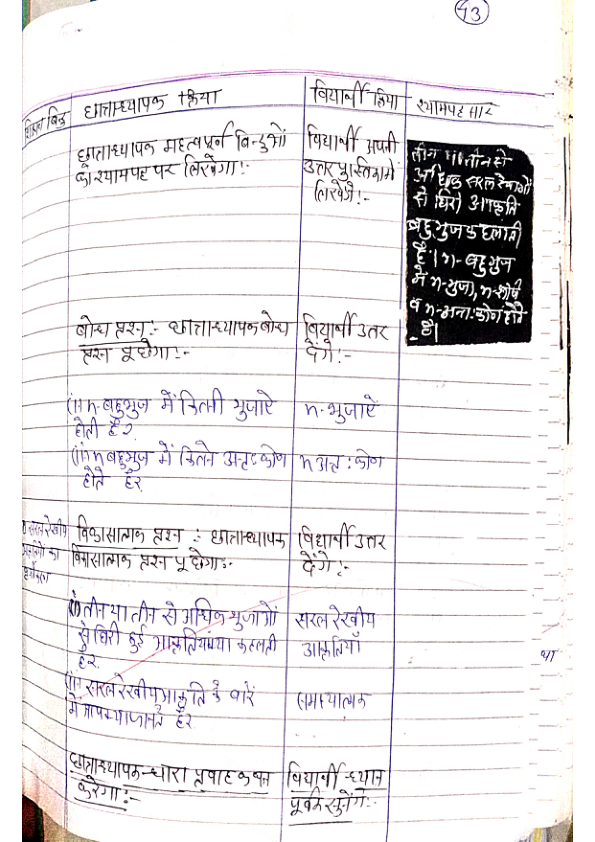 43
शिक्षण बिन्दु
छात्राध्यापक क्रिया
विद्यार्थी क्रिया
श्यामपट्ट सार
छात्राध्यापक महत्वपूर्ण बिन्दुओं
को श्यामपट्ट पर लिखेगा:-
विद्यार्थी अपनी
उत्तर पुस्तिका में
लिखेंगे:-
तीन या तीन से
अधिक सरल रेखाओं
से घिरी आकृति
बहुभुज कहलाती
है। n- बहुभुज
में n-भुजा, n-शीर्ष
व n-अन्त:कोण होते
है।
बोध प्रश्न:- छात्राध्यापक बोध
प्रश्न पूछेगा:-
विद्यार्थी उत्तर
देंगे:-
(i) n-बहुभुज में कितनी भुजाऐं
होती हैं?
n-भुजाऐं
(ii) n बहुभुज में कितने अन्तः कोण
होते हैं?
n अन्त:कोण
सरल रेखीय
का
विकासात्मक प्रश्न :- छात्राध्यापक
विकासात्मक प्रश्न पूछेगा:-
विद्यार्थी उत्तर
देंगे:-
(i) तीन या तीन से अधिक भुजाओं
से घिरी हुई आकृतियां क्या कहलाती
है?
सरल रेखीय
आकृतियाँ
(ii) सरल रेखीय आकृति के बारें
में आप क्या जानते है?
समस्यात्मक
छात्राध्यापक-धारा प्रवाह कथन
करेगा:-
विद्यार्थी ध्यान
पूर्वक सुनेंगे:-